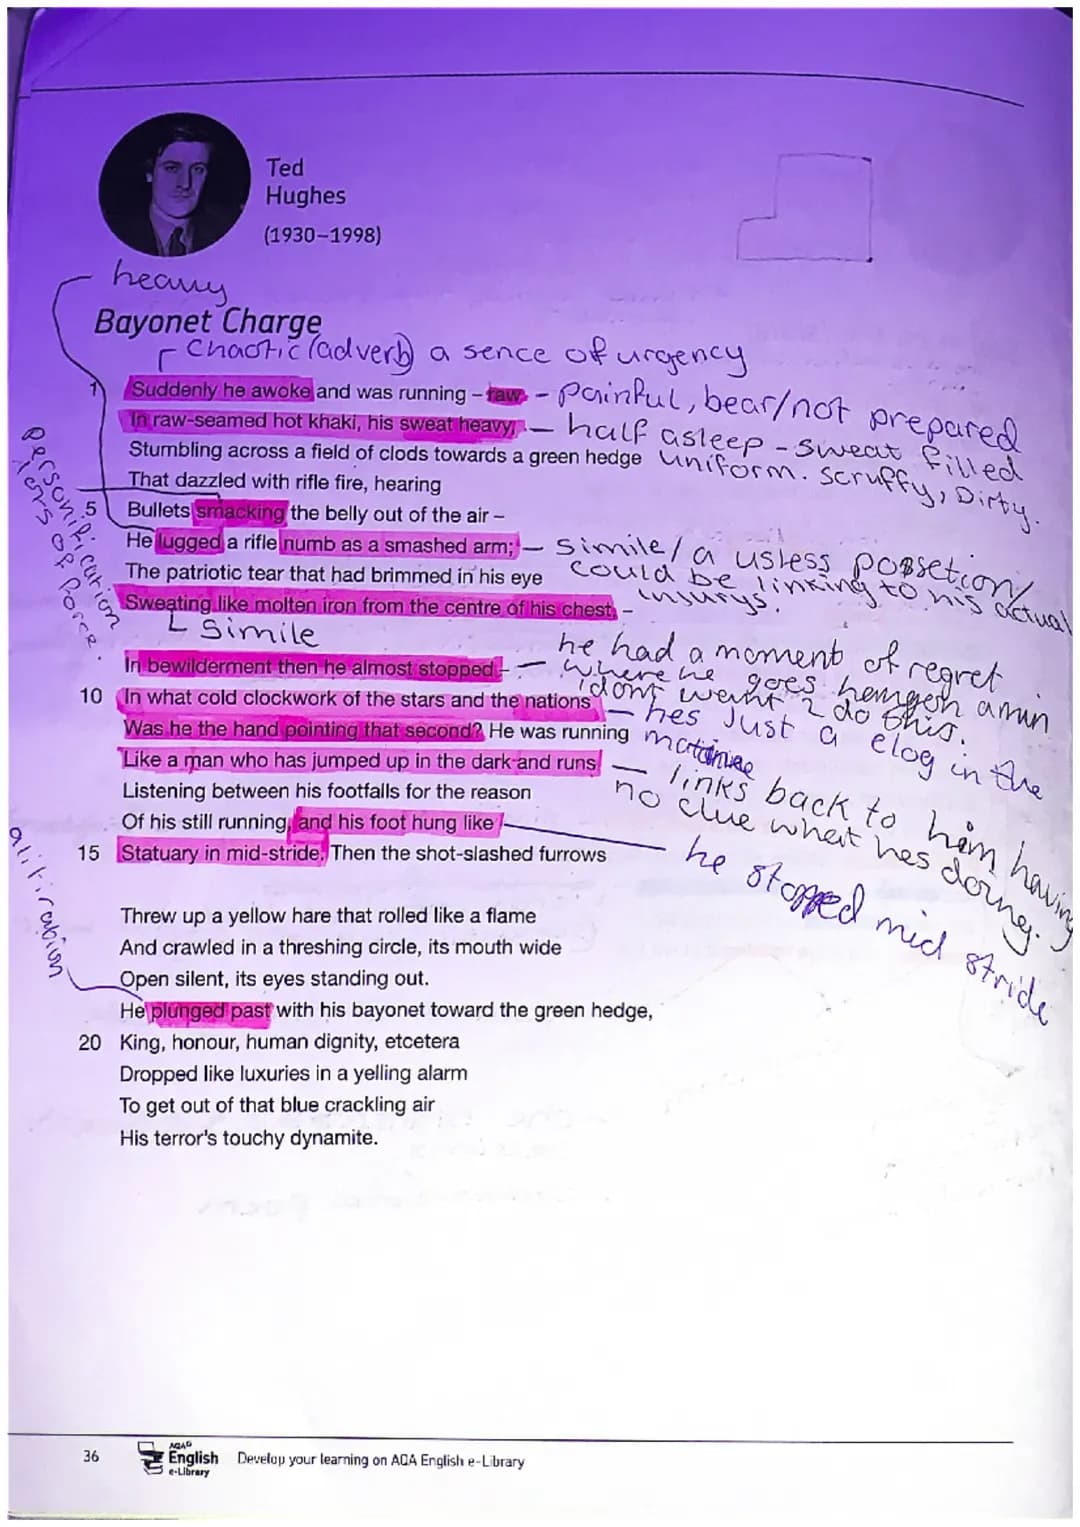 Ted
Hughes
(1930–1998)
heavy
Bayonet Charge
Chaotic (adverb) a sence of urgency
1 Suddenly he awoke and was running – raw - painful, bear/not prepared
In raw-seamed hot khaki, his sweat heavy, - half asleep - sweat filled
Stumbling across a field of clods towards a green hedge uniform. Scruffy, Dirty.
That dazzled with rifle fire, hearing
personification
lots of force.
5 Bullets smacking the belly out of the air –
He lugged a rifle numb as a smashed arm; - simile/a usless possetion/
The patriotic tear that had brimmed in his eye could be linking to his actual
injurys.
Sweating like molten iron from the centre of his chest, –
Simile
he had a moment of regret
In bewilderment then he almost stopped – - where he goes hangon amin
'dont want 2 do this.
10 In what cold clockwork of the stars and the nations - hes Just a clog in the
Was he the hand pointing that second? He was running
Like a man who has jumped up in the dark and runs - links back to him having
Listening between his footfalls for the reason no clue what hes doing.
Of his still running, and his foot hung like
15 Statuary in mid-stride. Then the shot-slashed furrows
he stopped mid stride
alitiration
Threw up a yellow hare that rolled like a flame
And crawled in a threshing circle, its mouth wide
Open silent, its eyes standing out.
He plunged past with his bayonet toward the green hedge,
20 King, honour, human dignity, etcetera
Dropped like luxuries in a yelling alarm
To get out of that blue crackling air
His terror's touchy dynamite.
36 AQA English e-Library Develop your learning on AQA English e-Library